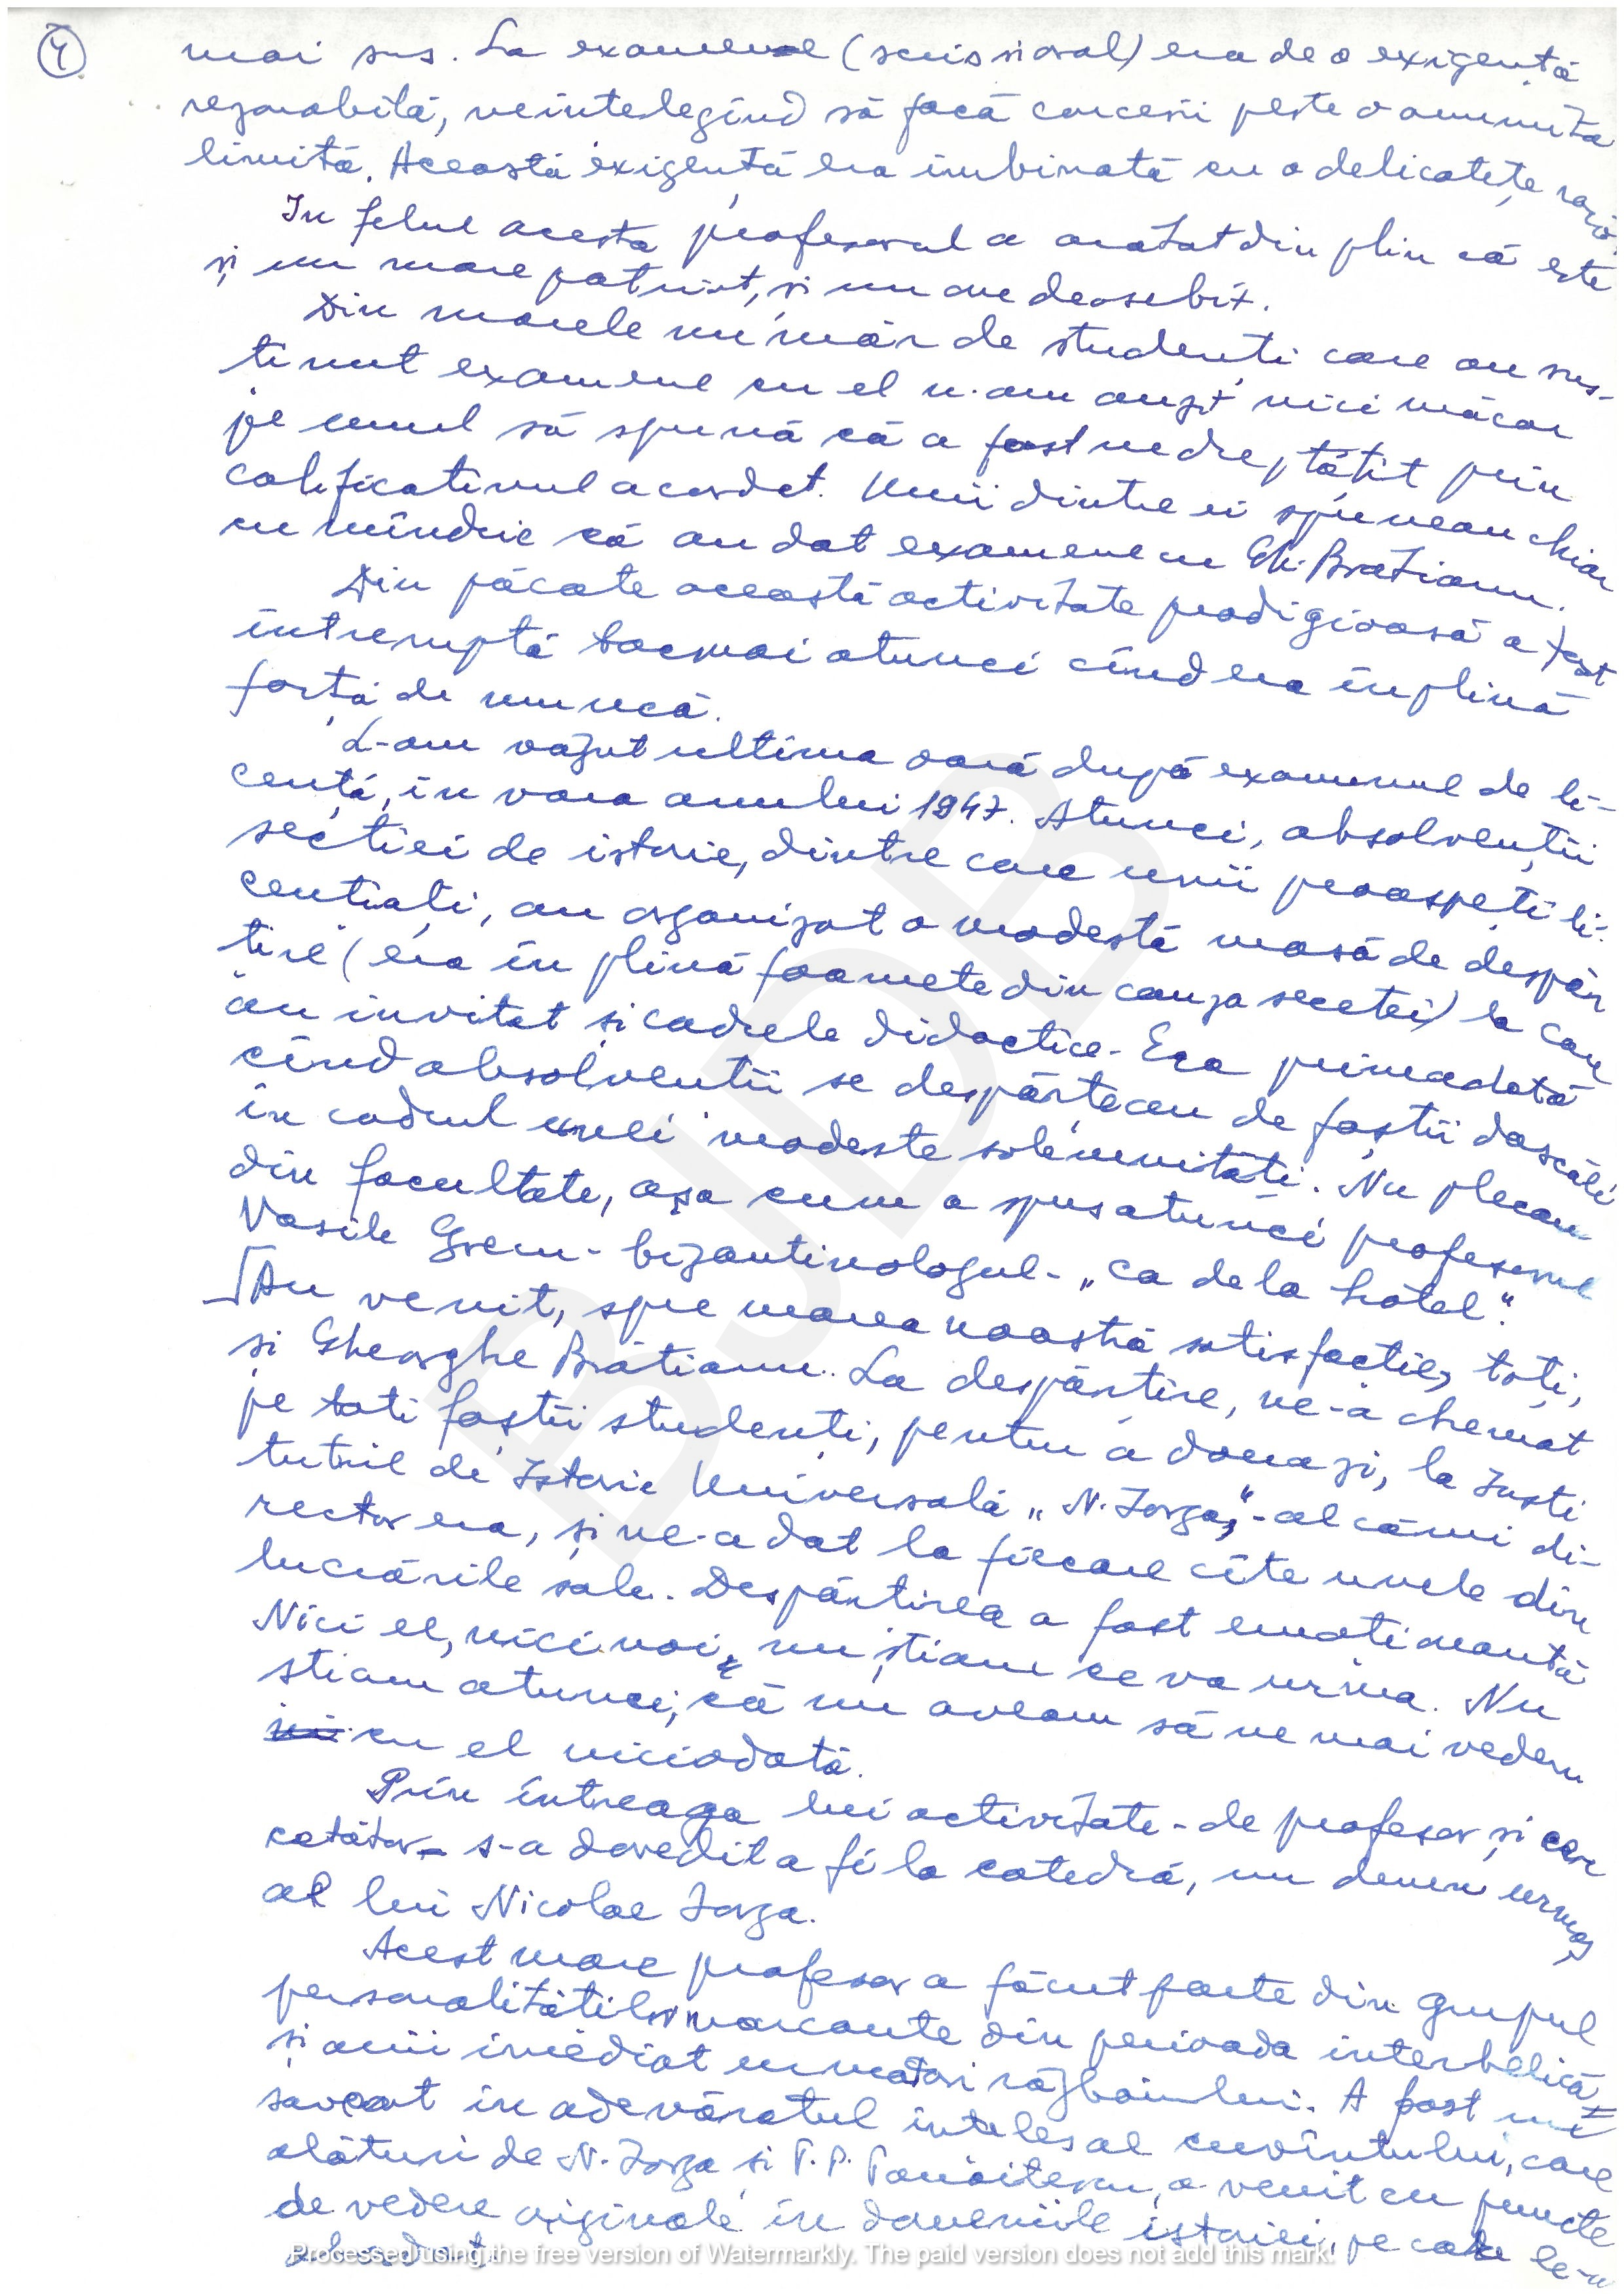 4
mai sus. La examene (scris și oral) era de o exigență
rezonabilă, neînțelegînd să facă concesii peste o anumită
limită. Această exigență era îmbinată cu o delicatețe rară.
In felul acesta profesorul a arătat din plin că este
și un mare patriot, și un om deosebit.
Din marele număr de studenți care au sus-
ținut examene cu el n-am auzit nici măcar
pe unul să spună că a fost nedreptățit prin
calificativul acordat. Unii dintre ei spuneau chiar
cu mîndrie că au dat examene cu Gh. Brătianu.
Din păcate această activitate prodigioasă a fost
întreruptă tocmai atunci cînd era în plină
forță de muncă.
L-am văzut ultima oară după examenul de li-
cență, în vara anului 1947. Atunci, absolvenții
secției de istorie, dintre care unii proaspeți li-
cențiați, au organizat o modestă masă de despăr
țire (era în plină foamete din cauza secetei) la care
au invitat și cadrele didactice. Era prima dată
cînd absolvenții se despărțeau de foștii dascăli
în cadrul unei modeste solemnități. Nu plecau
din facultate, așa cum a spus atunci profesorul
Vasile Grecu - bizantinologul - „ca de la hotel".
Au venit, spre marea noastră satisfacție, toți,
si Gheorghe Brătianu. La despărțire, ne-a chemat
pe toti foștii studenți, pentru a doua zi, la Insti
tutul de Istorie Universală „N. Iorga", - al cărui di-
rector era, și ne-a dat la fiecare cîte unele din
lucrările sale. Despărțirea a fost emoționantă
Nici el, nici noi, nu știam ce va urma. Nu
stiam atunci, că nu aveam să ne mai vedem
cu el niciodată.
Prin întreaga lui activitate - de profesor și cer
cetător - s-a dovedit a fi la catedră, un demn urmaș
al lui Nicolae Iorga.
Acest mare profesor a făcut parte din grupul
personalităților marcante din perioada interbelică
și anii imediat următori războiului. A fost un
savant în adevăratul înțeles al cuvîntului, care
alături de N. Iorga și P. P. Panaitescu, a venit cu puncte
de vedere originale în domeniile istoriei, pe care le-a
abordat.
BJDB
Processed using the free version of Watermarkly. The paid version does not add this mark.